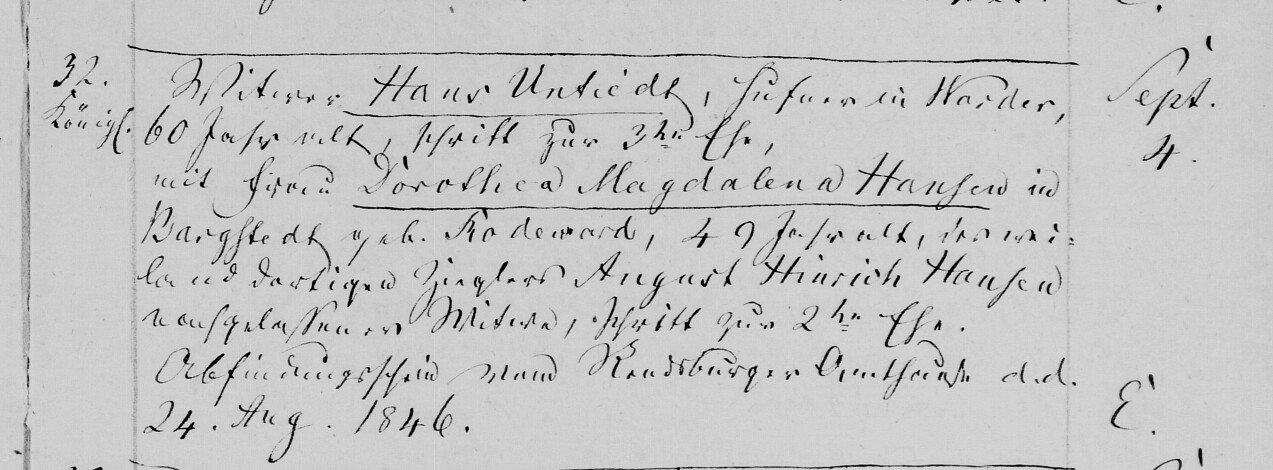 32.
Königl.
Witwer Hans Untiedt, Hufner in Warder,
60 Jahr alt, schritt zur 3ten Ehe,
mit Frau Dorothea Magdalena Hansen in
Bargstedt geb. Rodeward, 49 Jahr alt, des wei-
land dortigen Zieglers August Hinrich Hansen
nachgelassener Witwe, schritt zur 2ten Ehe.
Abfindungsschein vom Rendsburger Amthause d.d.
24. Aug. 1846.
Sept.
4.
E.